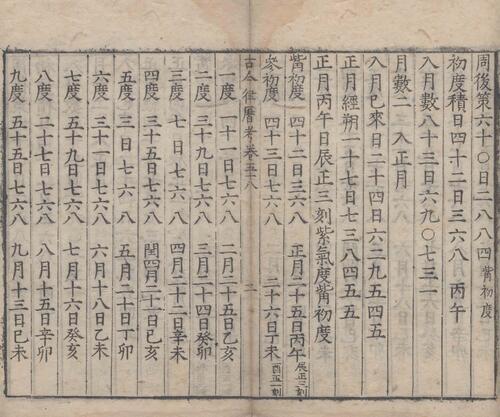 周後策六十〇日二八八四觜初度
初度積日四十二日三六八 丙午
入月數八十三日六九〇七三一
月數二 入正月
入月已來日二十四日六二九五四五
正月經朔一十七日七三八四五五
正月丙午日辰正三刻紫氣度觜初度
觜初度 四十二日三六八 正月二十五日丙午辰正三刻
參初度 四十三日七六八 二十六日丁未酉正一刻
古今律曆考卷五十八 二
一度 一十一日七六八 二月二十五日乙亥
二度 三十九日七六八 三月二十四日癸卯
三度 七日七六八 四月二十二日辛未
四度 三十五日七六八 閏四月二十一日己亥
五度 三日七六八 五月二十日丁卯
六度 三十一日七六八 六月十八日乙未
七度 五十九日七六八 七月十六日癸亥
八度 二十七日七六八 八月十五日辛卯
九度 五十五日七六八 九月十三日己未